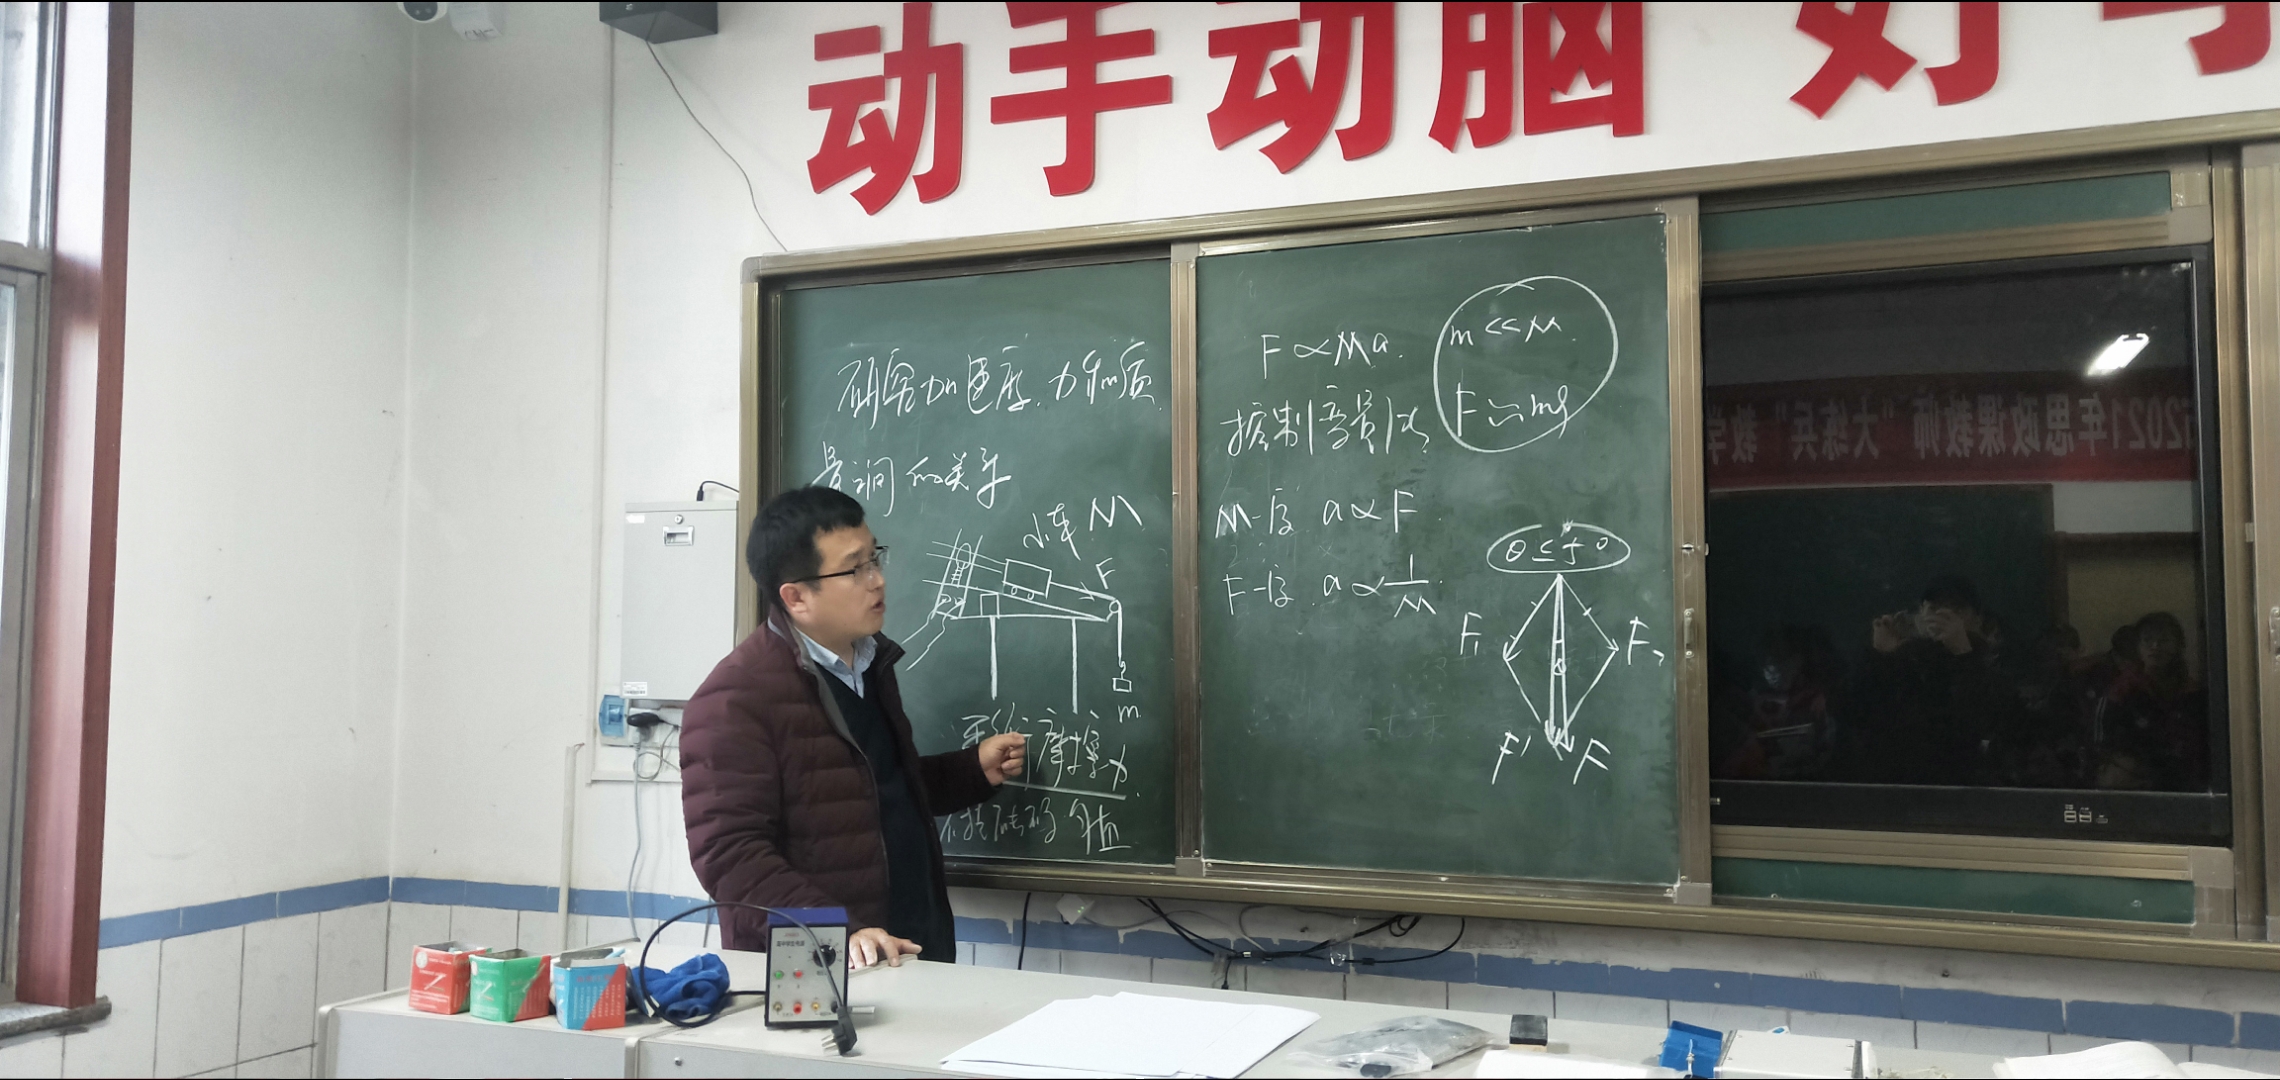 动手动脑 好
研究加速度.力和质
量间的关系
小车 M
F
m
平衡摩擦力
不挂砝码.匀直
F∝Ma.
控制变量法
M-定 a∝F
F-定 a∝1/M
m<<M.
F≈mg
F₁
F₂
F′ F
2021年思政课教师"大练兵"教学